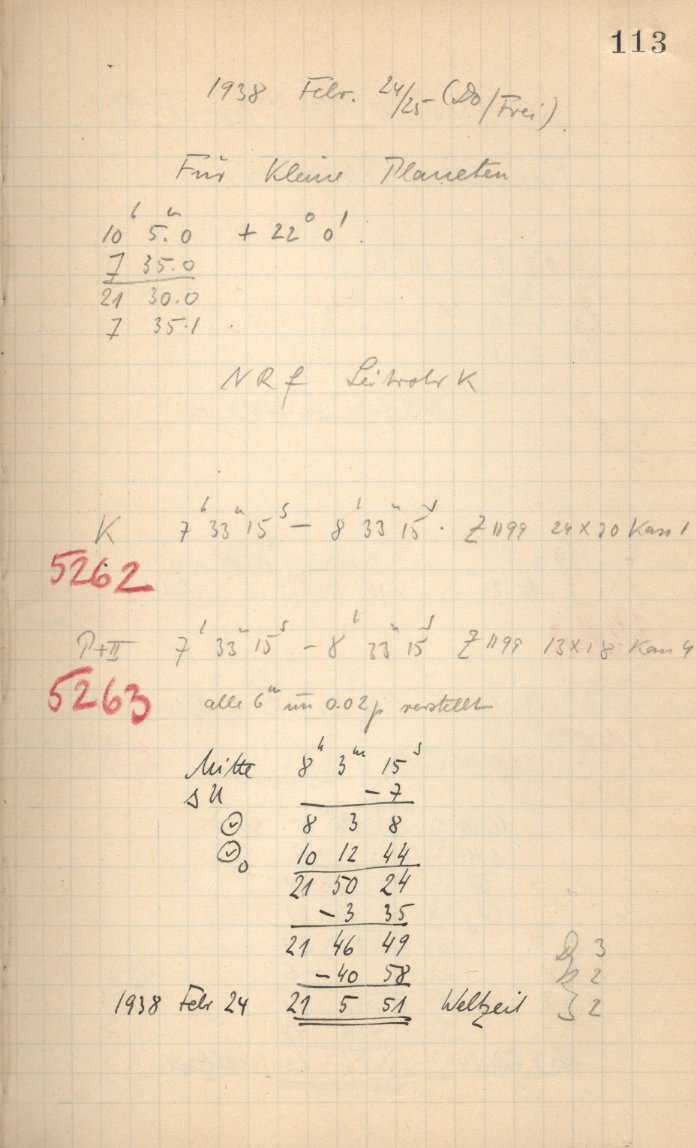 113
1938 Febr. 24/25 (Do/Frei)
Für Kleine Planeten
10ʰ 5.ᵐ0 + 22° 0'
7 35.0
21 30.0
7 35.1
NRf Leitrohr K
K 7ʰ 33ᵐ 15ˢ – 8ʰ 33ᵐ 15ˢ. Z 1199 24 × 30 Kass 1
5262
P+II 7ʰ 33ᵐ 15ˢ – 8ʰ 33ᵐ 15ˢ Z 1199 13×18 Kass 4
5263
alle 6ᵐ um 0.02p verstellt
Mitte 8ʰ 3ᵐ 15ˢ
ΔU – 7
8 3 8
10 12 44
21 50 24
– 3 35
21 46 49
– 40 58
1938 Febr 24 21 5 51 Weltzeit
3
2
2